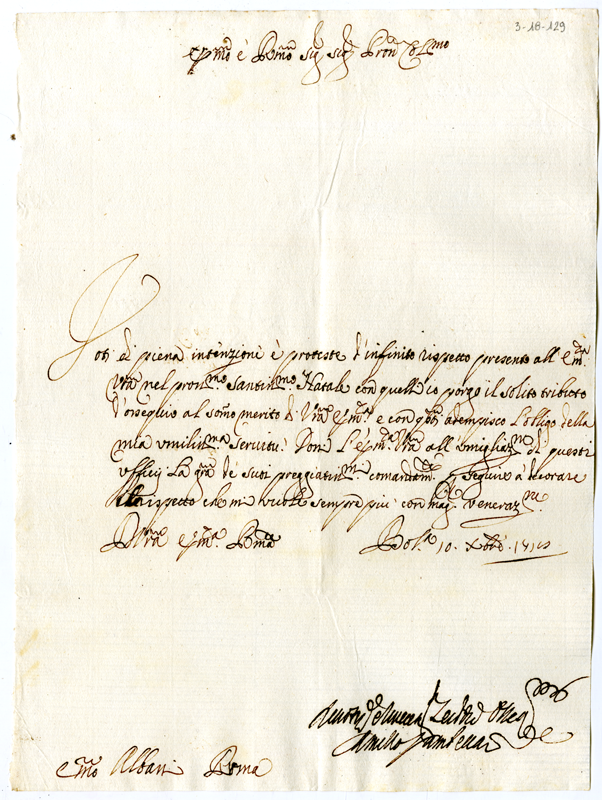 3-18-129
e R.mo Sig.r Sig.r Pron Col.mo
Voti di piena intenzione è proteste d'infinito rispetto presento all' Em.za
Vra nel pross.mo Santiss.mo Natale con quell' io porgo il solito tributo
d'ossequio al som̃o merito di Vra Em.za e con q̃sti adempisco l'obligo della
mia umiliss.ma servitù. Doni l'Em.za Vra all' umigliaz.ne di questi
ufficij la gra de suoi preggiatiss.mi comandam.ti p seguire à decorare
rispetto che mi sempre più con mag. veneraz.ne
D Vra Em.za R.ma Bol.a 10. Xbre
Servitor
Camillo
Em̃o Albani Roma